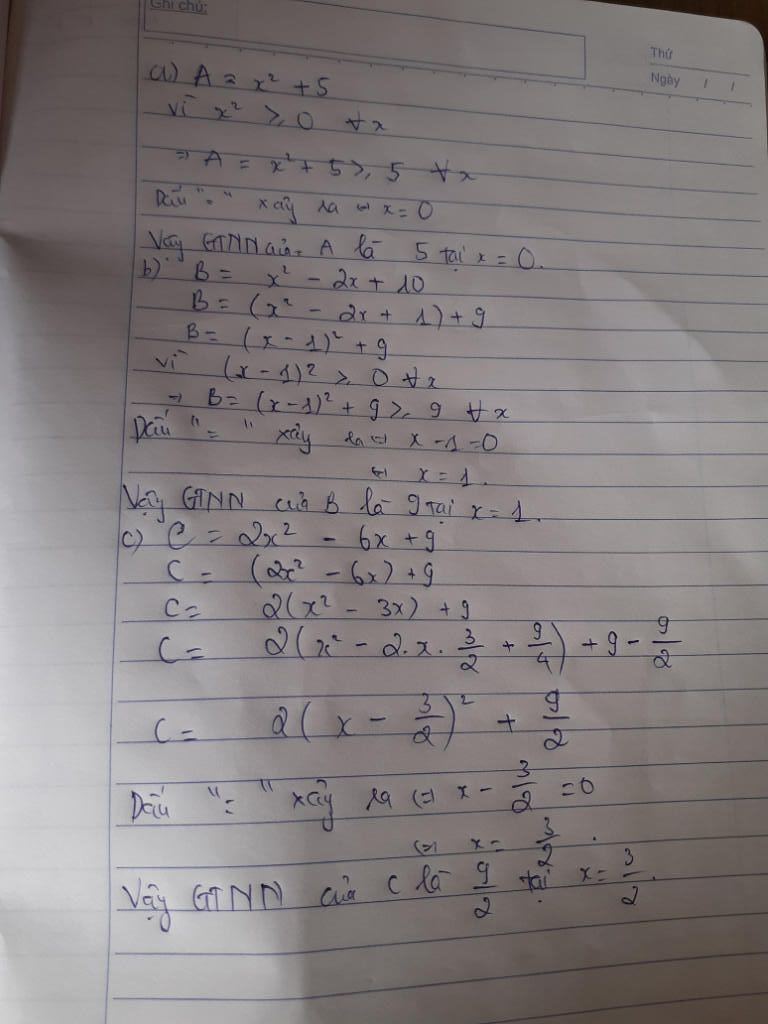 Ghi chú:
Thứ
Ngày / /
a) A = x² + 5
Vì x² ≥ 0 ∀x
⇒ A = x² + 5 ≥ 5 ∀x
Dấu "=" xảy ra ⇔ x = 0
Vậy GTNN của A là 5 tại x = 0.
b) B = x² - 2x + 10
B = (x² - 2x + 1) + 9
B = (x - 1)² + 9
Vì (x - 1)² ≥ 0 ∀x
⇒ B = (x - 1)² + 9 ≥ 9 ∀x
Dấu "=" xảy ra ⇔ x - 1 = 0
⇔ x = 1.
Vậy GTNN của B là 9 tại x = 1.
c) C = 2x² - 6x + 9
C = (2x² - 6x) + 9
C = 2(x² - 3x) + 9
C = 2(x² - 2.x.3/2 + 9/4) + 9 - 9/2
C = 2(x - 3/2)² + 9/2
Dấu "=" xảy ra ⇔ x - 3/2 = 0
⇔ x = 3/2.
Vậy GTNN của C là 9/2 tại x = 3/2.